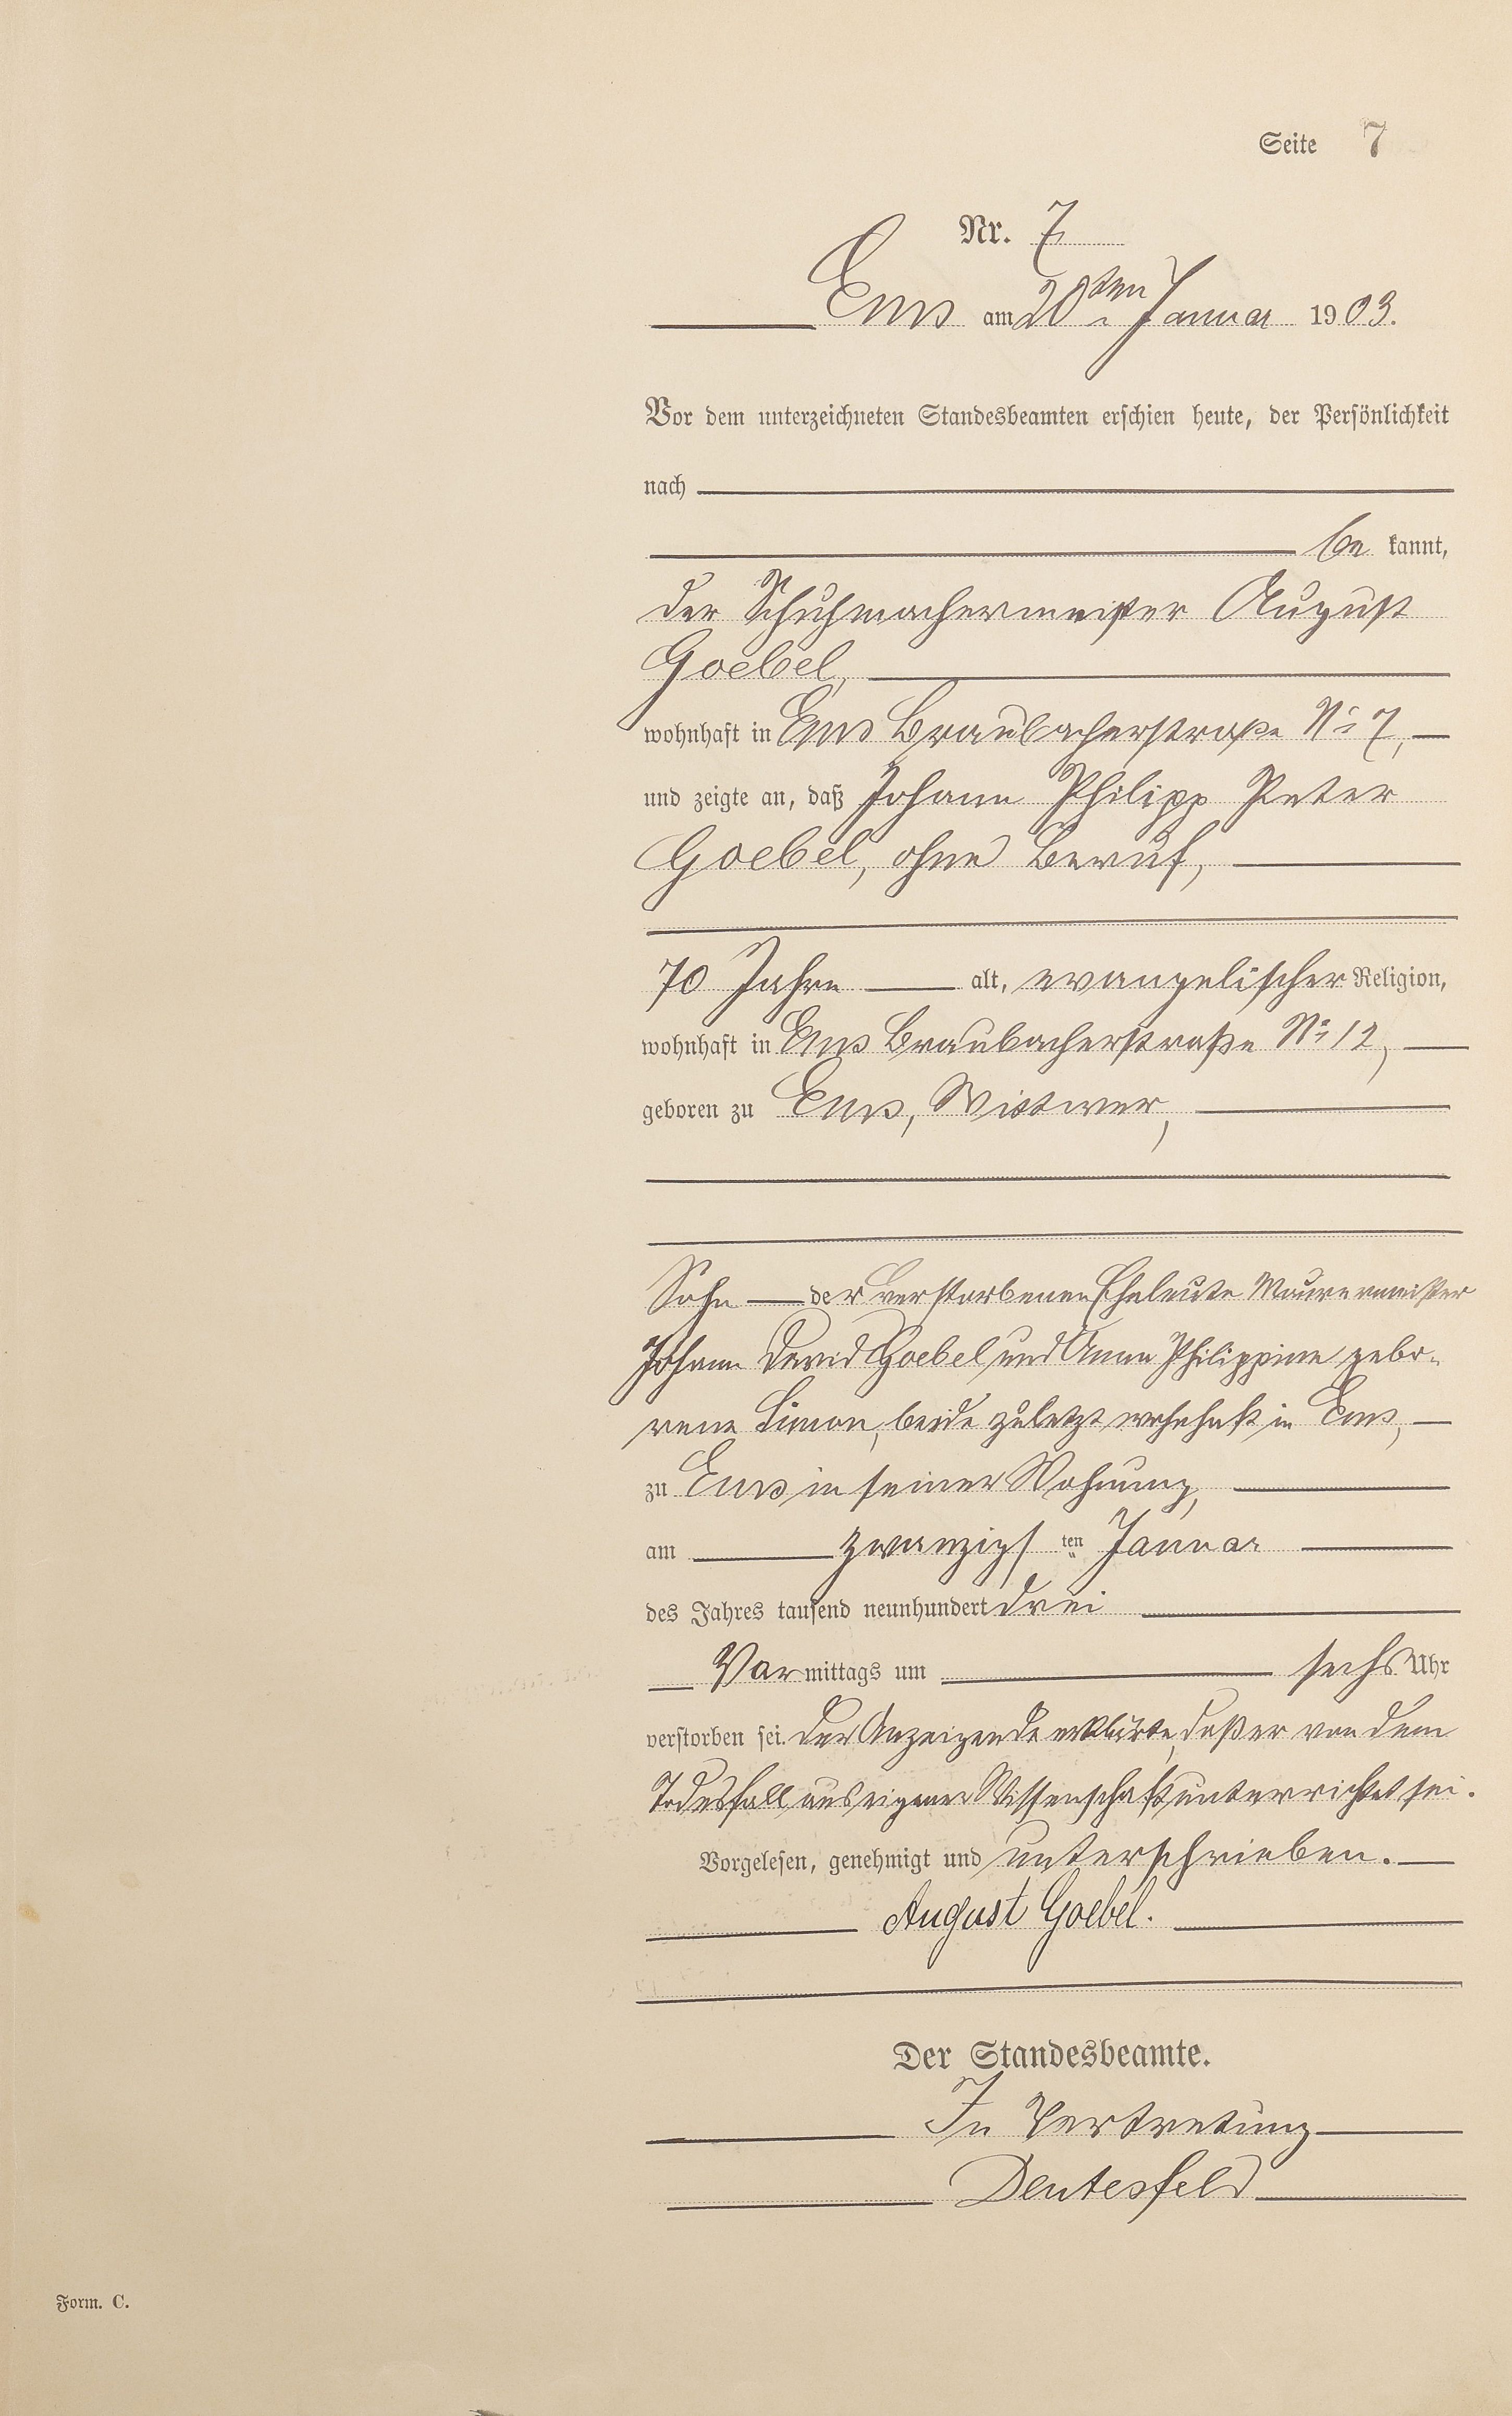 Seite 7
Nr. 7
Ems am 20ten Januar 1903.
Vor dem unterzeichneten Standesbeamten erschien heute, der Persönlichkeit
nach
be kannt,
der Schuhmachermeister August
Goebel,
wohnhaft in Ems Braubacherstraße No 7,
und zeigte an, daß Johann Philipp Peter
Goebel, ohne Beruf,
70 Jahre alt, evangelischer Religion,
wohnhaft in Ems Braubacherstraße No 12,
geboren zu Ems, Wittwer,
Sohn der verstorbenen Eheleute Maurermeister
Johann David Goebel und Anna Philippine gebo-
rene Simon, beide zuletzt wohnhaft in Ems,
zu Ems in seiner Wohnung,
am zwanzigsten Januar
des Jahres tausend neunhundert drei
Vormittags um sechs Uhr
verstorben sei. Der Anzeigende erklärte, daß er von dem
Todesfall aus eigener Wissenschaft unterrichtet sei.
Vorgelesen, genehmigt und unterschrieben.
August Goebel.
Der Standesbeamte.
In Vertretung
Deutesfeld
Form. C.